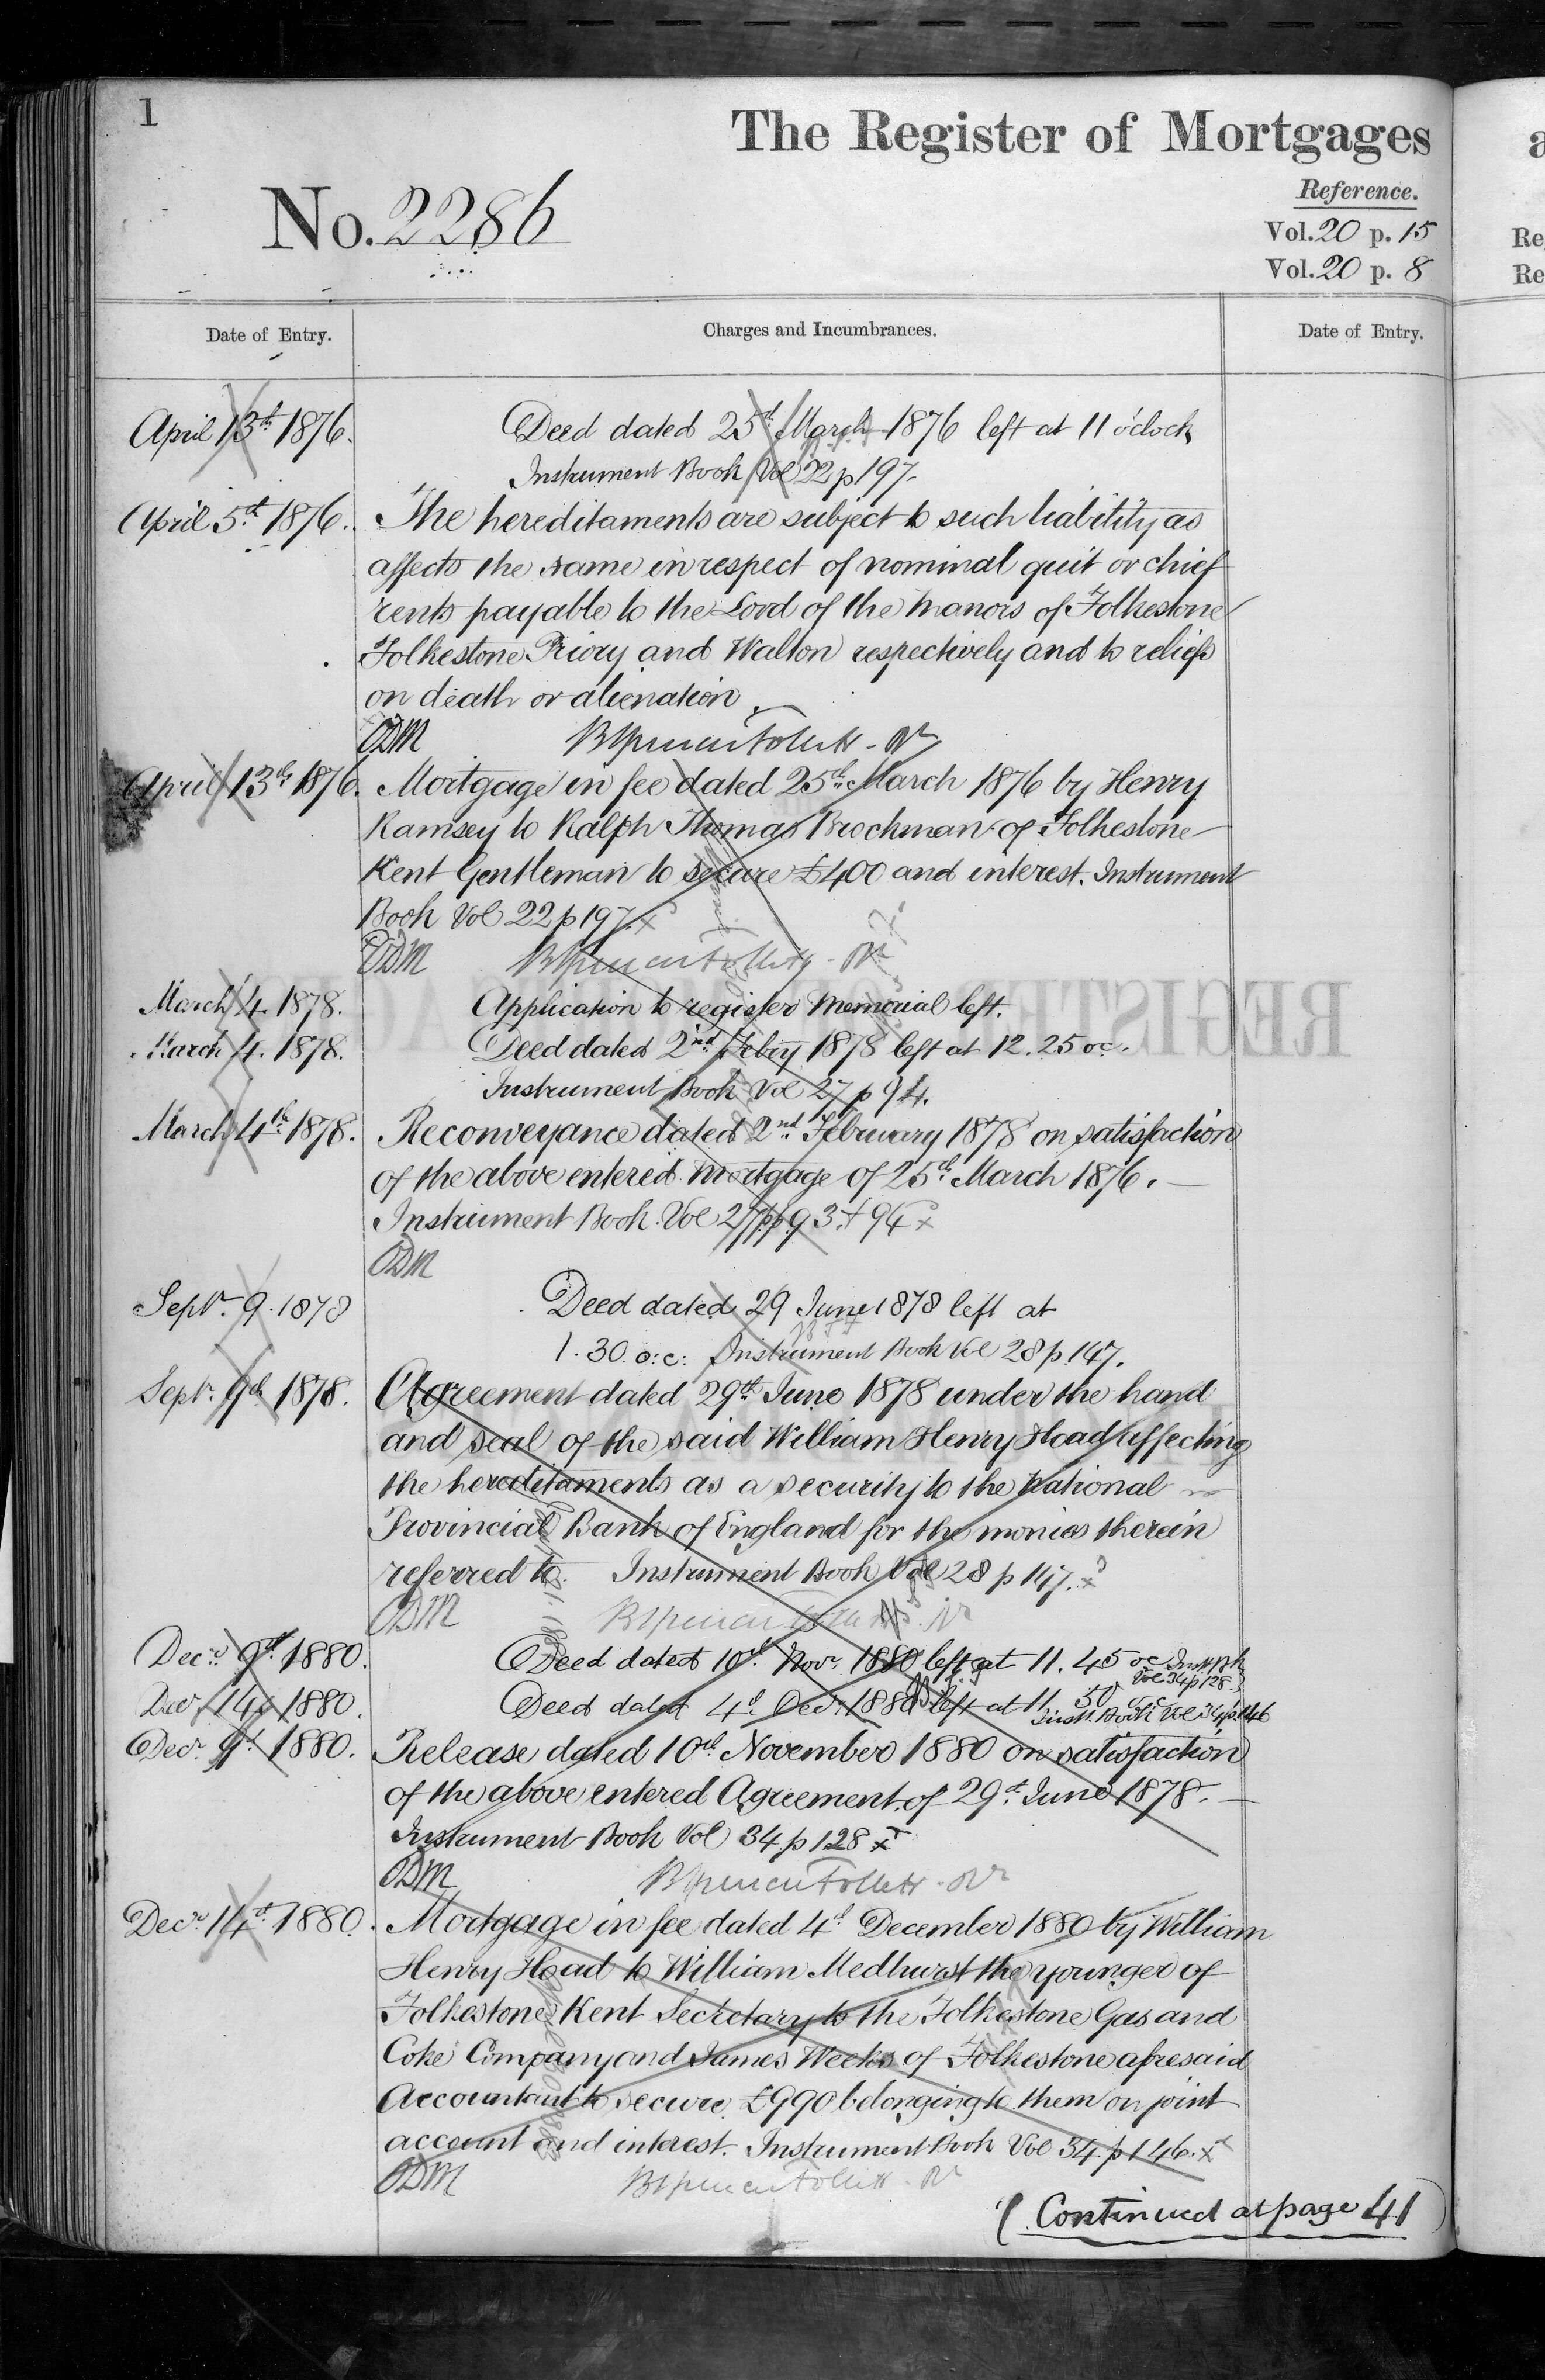 1
The Register of Mortgages
Reference.
No. 2286
Vol. 20 p. 15
Vol. 20 p. 8
Re
Re
Date of Entry.
Charges and Incumbrances.
Date of Entry.
April 13th 1876.
Deed dated 25th March 1876 left at 11 o'clock
Instrument Book Vol 22 p 197.
April 5th 1876.
The hereditaments are subject to such liability as
affects the same in respect of nominal quit or chief
rents payable to the Lord of the Manors of Folkestone
Folkestone Priory and Walton respectively and to reliefs
on death or alienation
ODM BSpencer Follett - Rr
April 13th 1876.
Mortgage in fee dated 25th March 1876 by Henry
Ramsey to Ralph Thomas Brockman of Folkestone
Kent Gentleman to secure £400 and interest. Instrument
Book Vol 22 p 197. x
ODM BSpencer Follett - Rr
March 4. 1878.
Application to register Memorial left.
March 4. 1878.
Deed dated 2nd Febry 1878 left at 12.25 oc.
Instrument Book Vol 27 p 94.
March 4th 1878.
Reconveyance dated 2nd February 1878 on satisfaction
of the above entered Mortgage of 25th March 1876.
Instrument Book Vol 27 pp 93 + 94 x
ODM
Septr. 9. 1878
Deed dated 29 June 1878 left at
1.30. o:c: Instrument Book Vol 28 p 147.
Septr. 9th 1878.
Agreement dated 29th June 1878 under the hand
and seal of the said William Henry Hoad affecting
the hereditaments as a security to the National
Provincial Bank of England for the monies therein
referred to. Instrument Book Vol 28 p 147. x
ODM BSpencer Follett Rr
Decr. 9th 1880.
Deed dated 10th Novr. 1880 left at 11.45 oc Inst Bk
Vol 34 p 128.
Decr. 14 1880.
Deed dated 4th Decr. 1880 left at 11.50 oc
Inst. Book Vol 34 p 146
Decr. 9th 1880.
Release dated 10th November 1880 on satisfaction
of the above entered Agreement of 29th June 1878.
Instrument Book Vol 34 p 128 x
ODM BSpencer Follett - Rr
Decr. 14th 1880.
Mortgage in fee dated 4th December 1880 by William
Henry Hoad to William Medhurst the younger of
Folkestone Kent Secretary to the Folkestone Gas and
Coke Company and James Weeks of Folkestone aforesaid
Accountant to secure £990 belonging to them on joint
account and interest. Instrument Book Vol 34 p 146. x
ODM BSpencer Follett - Rr
(Continued at page 41)